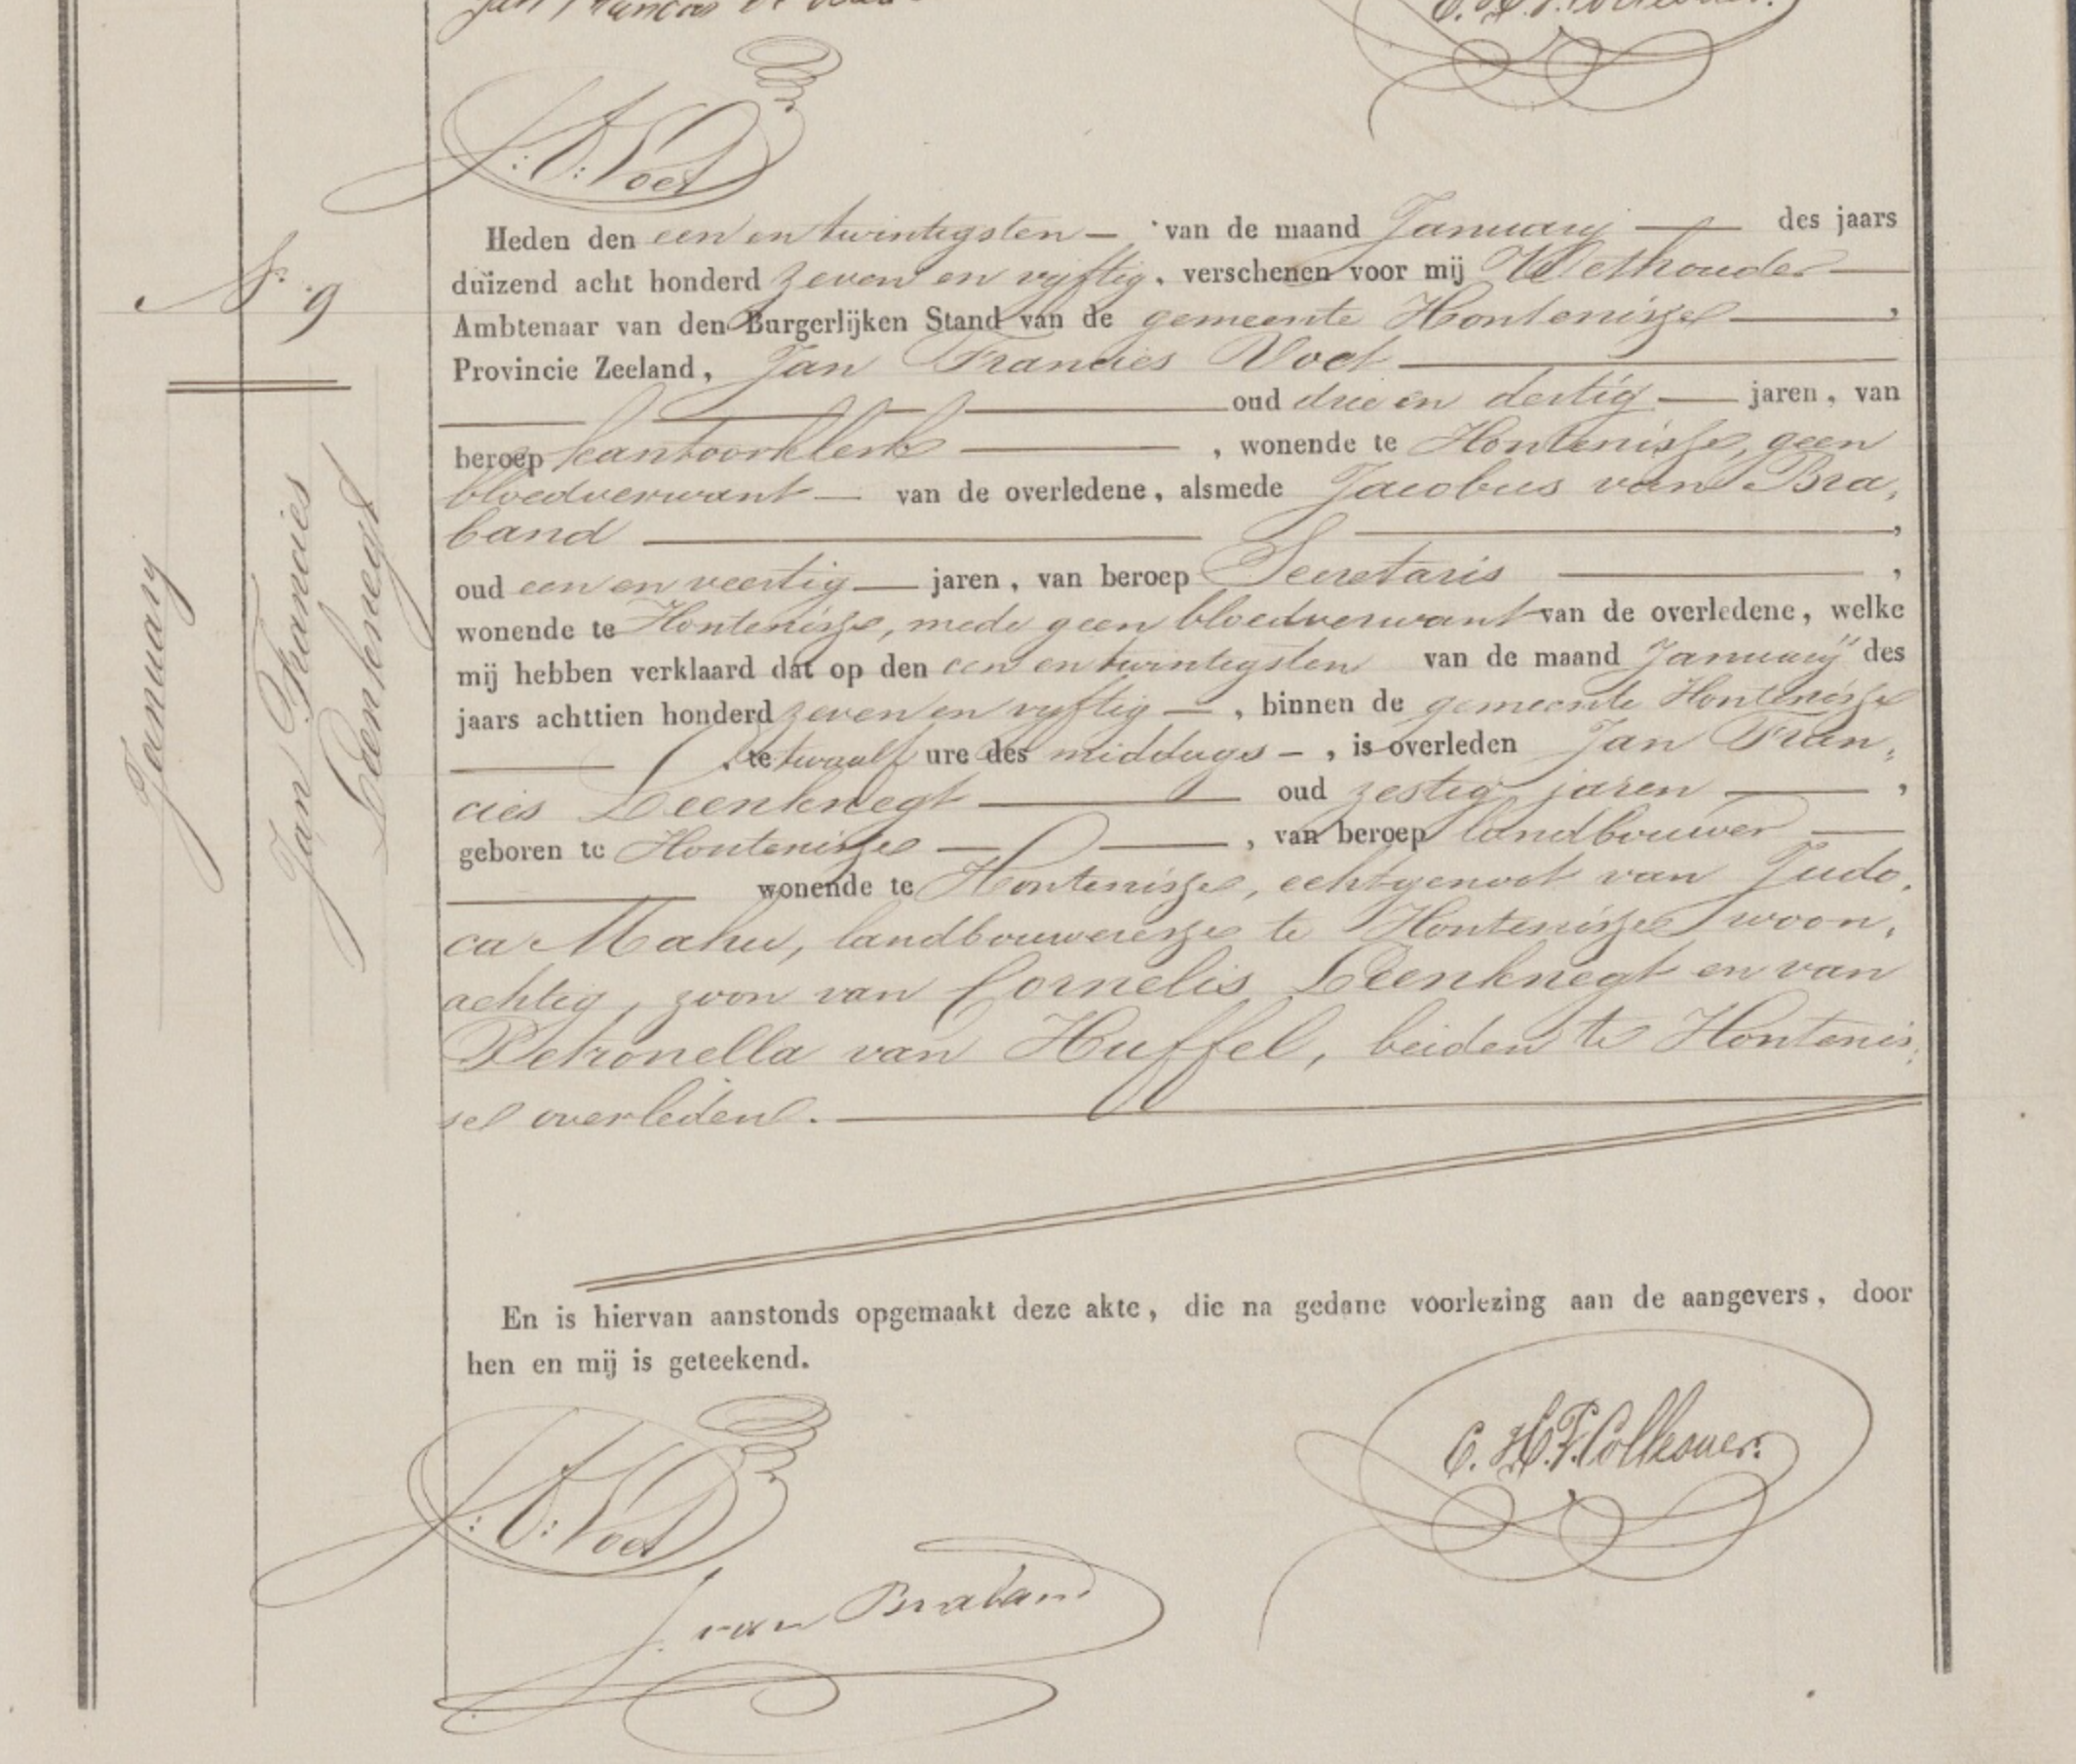 J: F: Voet
Heden den een en twintigsten — van de maand January — des jaars
duizend acht honderd zeven en vyftig. verschenen voor mij Wethouder —
Ambtenaar van den Burgerlijken Stand van de gemeente Hontenisse —,
Provincie Zeeland, Jan Francies Voet —
— oud drie en dertig — jaren, van
beroep kantoorklerk — , wonende te Hontenisse, geen
bloedverwant — van de overledene, alsmede Jacobus van Bra,
band — ,
oud een en veertig — jaren, van beroep Secretaris — ,
wonende te Hontenisse, mede geen bloedverwant van de overledene, welke
mij hebben verklaard dat op den een en twintigsten van de maand January des
jaars achttien honderd zeven en vyftig — , binnen de gemeente Hontenisse
— , te twaalf ure des middags — , is overleden Jan Fran,
cies Leenknegt — oud zestig jaren — ,
geboren te Hontenisse — , van beroep landbouwer —
— wonende te Hontenisse, echtgenoot van Judo,
ca Mahu, landbouweresse te Hontenisse woon,
achtig, zoon van Cornelis Leenknegt en van
Petronella van Huffel, beiden te Hontenis,
se overleden. —
En is hiervan aanstonds opgemaakt deze akte, die na gedane voorlezing aan de aangevers, door
hen en mij is geteekend.
J: F: Voet
C. H. F. Collsouer.
J. van Braband
N.r 9
January
Jan Francies
Leenknegt